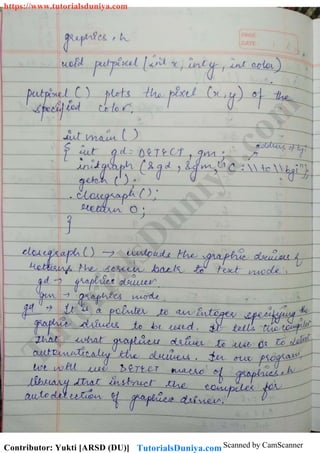 https://www.tutorialsduniya.com
PAGE:
DATE:
graphics.h
void putpixel (int x, int y, int color)
putpixel () plots the pixel (x, y) of the
specified color.
int main ()
{ int gd = DETECT, gm; address of bgi
initgraph (&gd, &gm, "C:\\tc\\bgi");
getch ();
closegraph ();
return 0;
}
closegraph () → unloads the graphic drivers &
returns the screen back to text mode.
gd → graphics driver
gm → graphics mode.
gd → It is a pointer to an integer specifying the
graphic drivers to be used. It tells the compiler
that what graphics driver to use or to detect
automatically the drivers. In our program
we will use DETECT macro of graphics.h
library that instruct the compiler for
autodetection of graphics driver.
TutorialsDuniya.com
Contributor: Yukti [ARSD (DU)] TutorialsDuniya.com Scanned by CamScanner